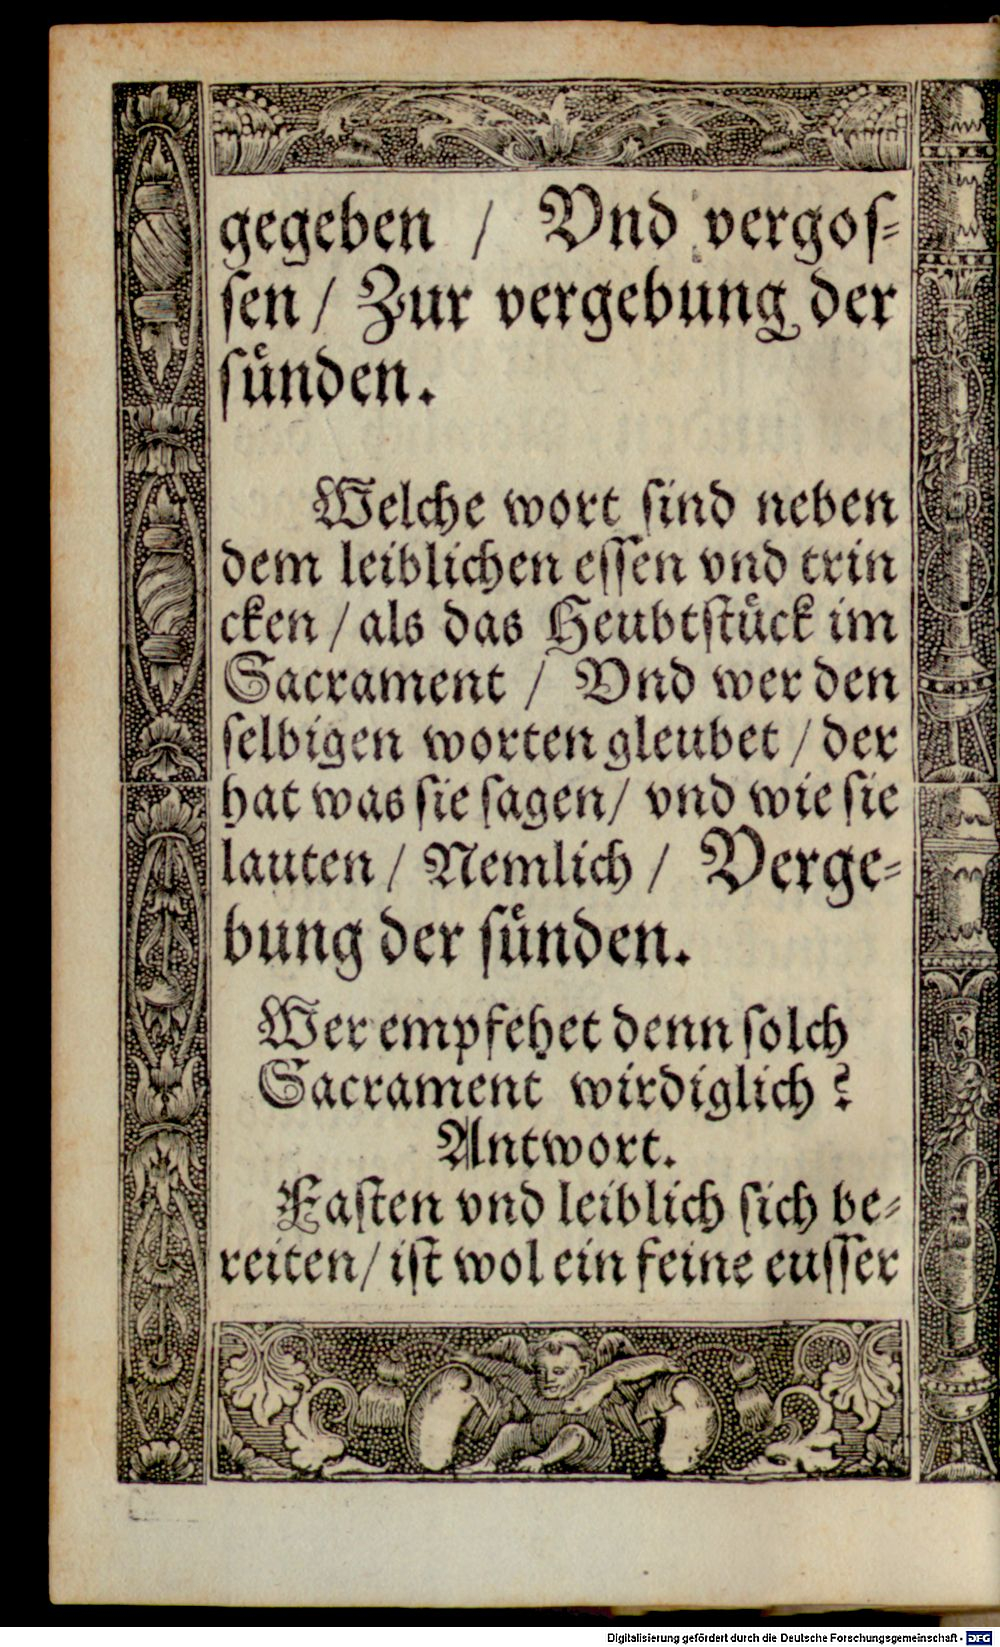 gegeben / Vnd vergoſ-
ſen / Zur vergebung der
ſuͤnden.
Welche wort ſind neben
dem leiblichen eſſen vnd trin
cken / als das Heubtſtuͤck im
Sacrament / Vnd wer den
ſelbigen worten gleubet / der
hat was ſie ſagen / vnd wie ſie
lauten / Nemlich / Verge-
bung der ſuͤnden.
Wer empfehet denn ſolch
Sacrament wirdiglich ?
Antwort.
Faſten vnd leiblich ſich be-
reiten / iſt wol ein feine euſſer
Digitalisierung gefördert durch die Deutsche Forschungsgemeinschaft - DFG